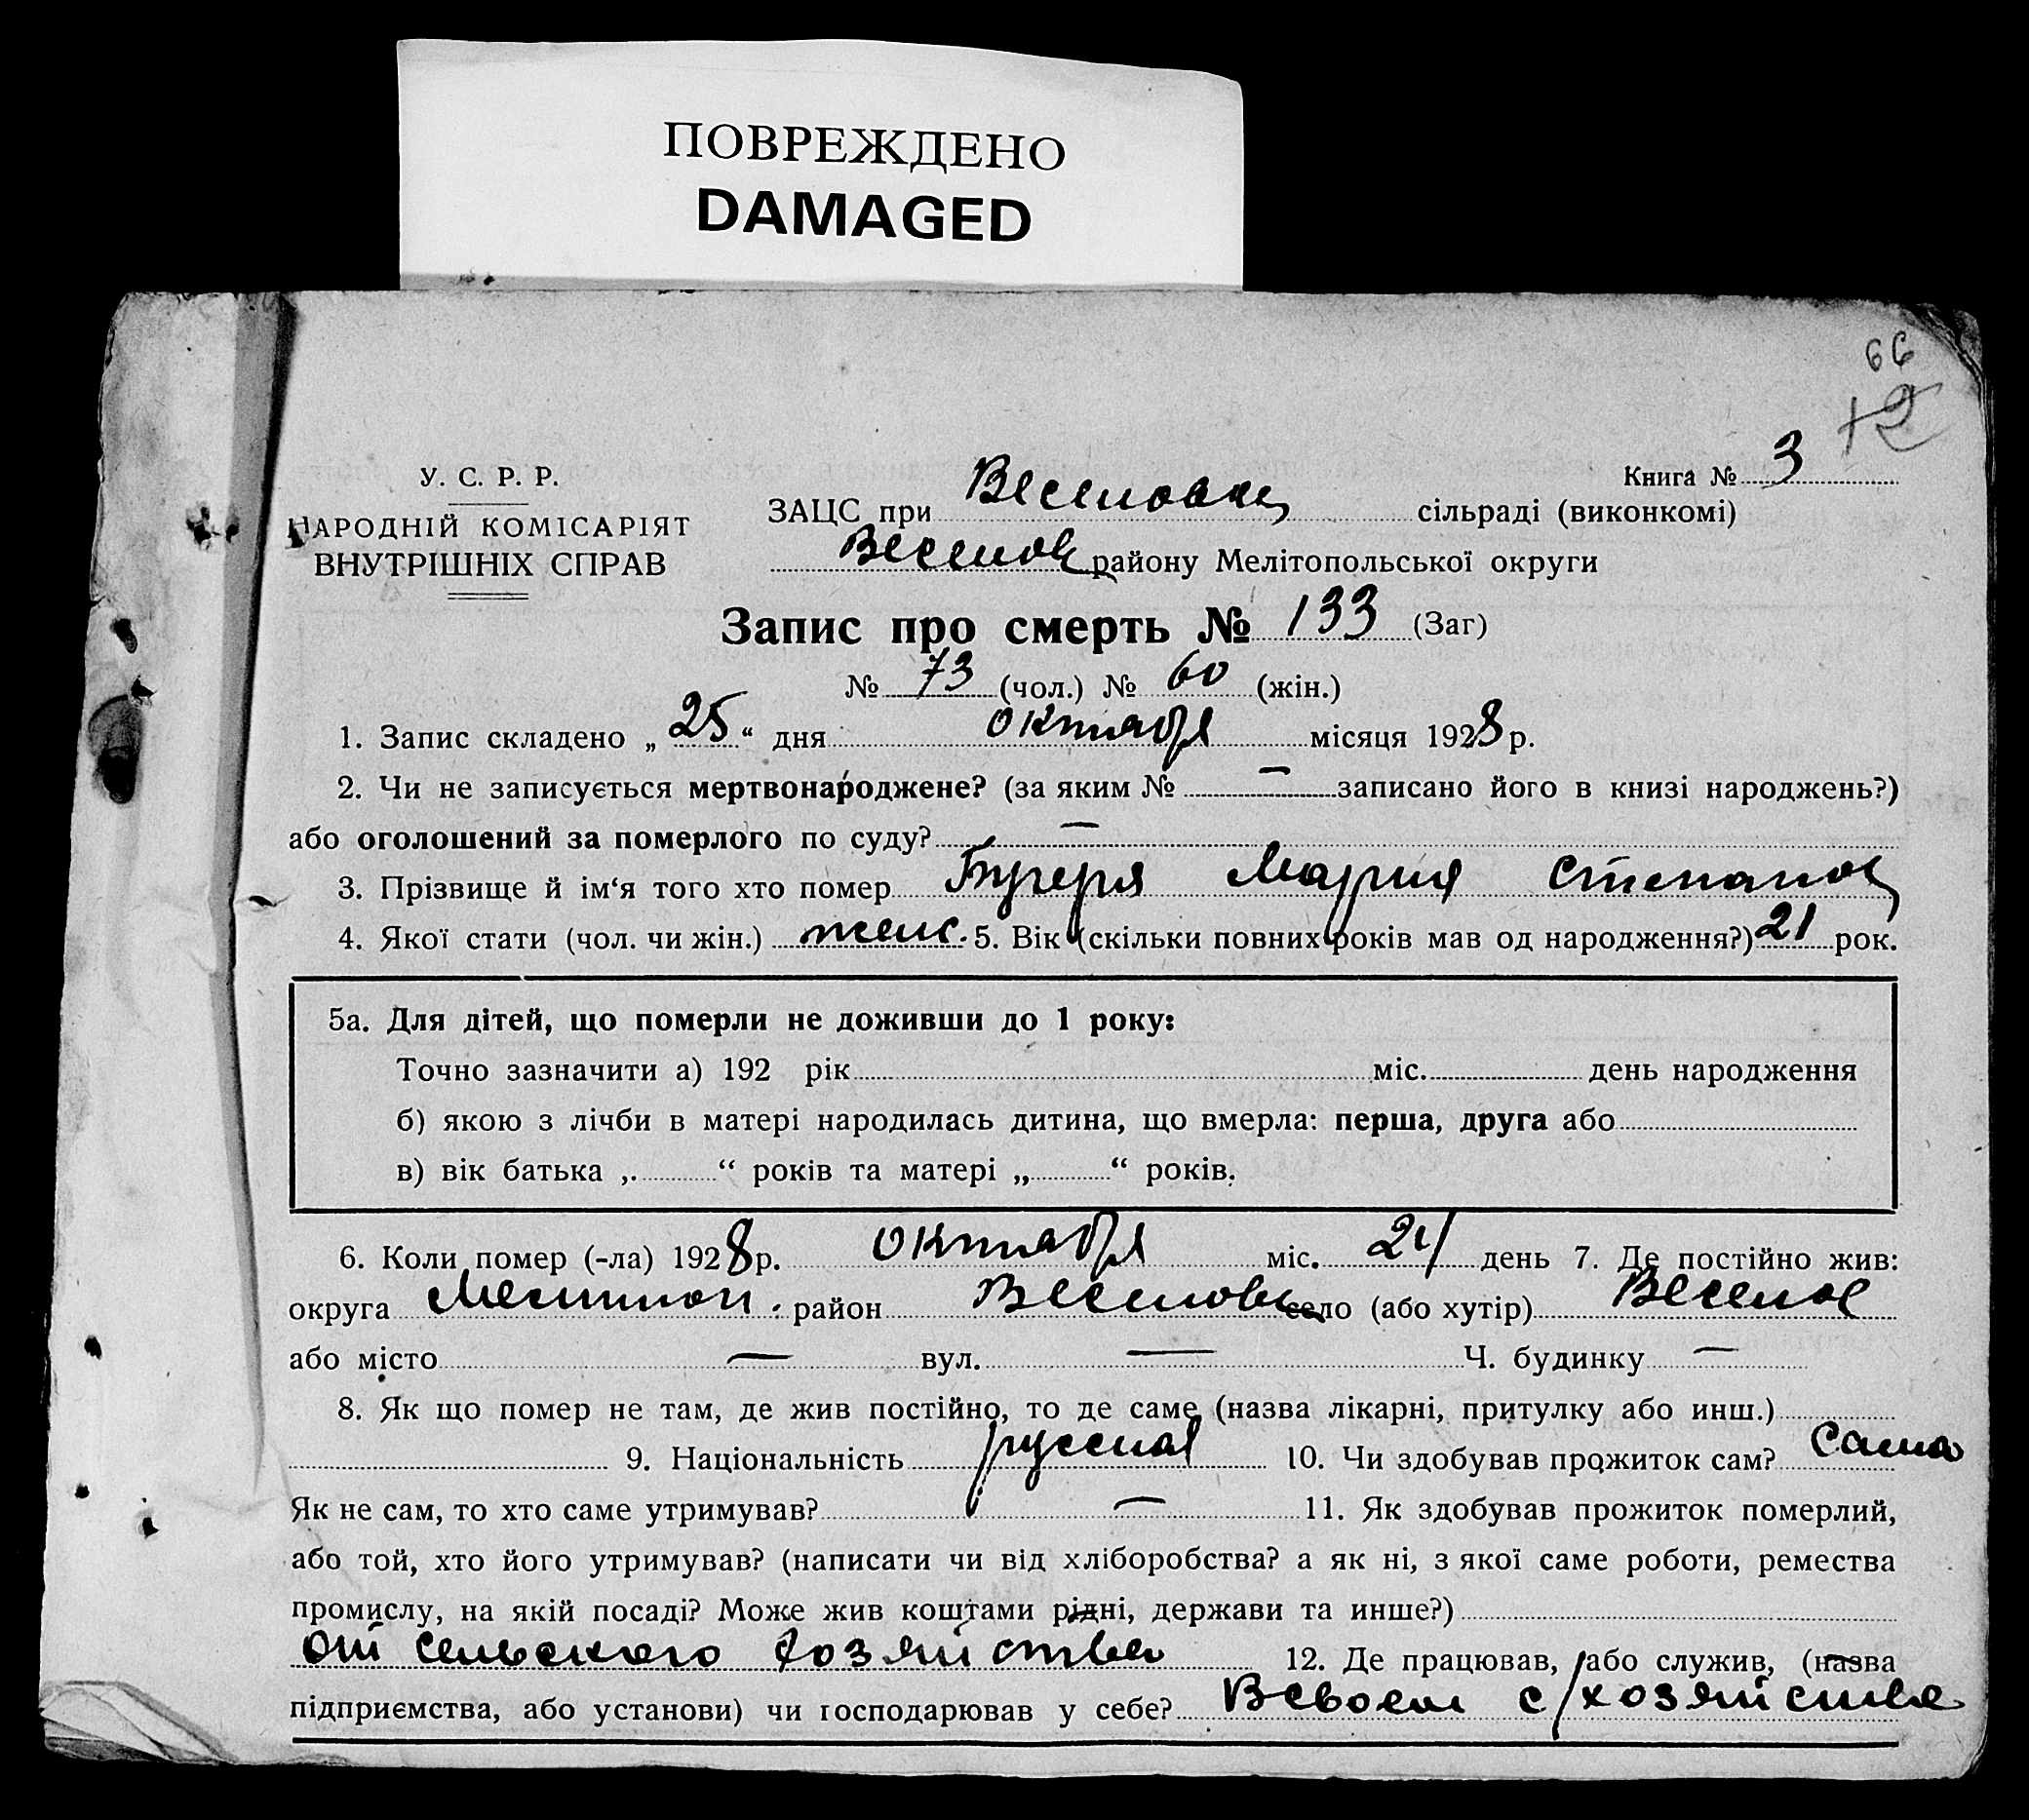 ПОВРЕЖДЕНО
DAMAGED
66
12
У. С. Р. Р.
НАРОДНІЙ КОМІСАРІЯТ
ВНУТРІШНІХ СПРАВ
Книга № 3
ЗАЦС при сільраді (виконкомі)
Веселов району Мелітопольської округи
Запис про смерть № 133 (Заг)
№ 73 (чол.) № 60 (жін.)
1. Запис складено „ 25 “ дня октября місяця 1928 р.
2. Чи не записується мертвонароджене? (за яким № — записано його в книзі народжень?)
або оголошений за померлого по суду? —
3. Прізвище й ім‘я того хто помер Бугеря Мария Степанов
4. Якої стати (чол. чи жін.) женс. 5. Вік (скільки повних років мав од народження?) 21 рок.
5а. Для дітей, що померли не доживши до 1 року:
Точно зазначити а) 192 рік міс. день народження
б) якою з лічби в матері народилась дитина, що вмерла: перша, друга або
в) вік батька „ “ років та матері „ “ років.
6. Коли помер (-ла) 1928 р. октября міс. 24 день 7. Де постійно жив:
округа Мелитоп. район Веселовс село (або хутір) Веселое
або місто — вул. — Ч. будинку —
8. Як що помер не там, де жив постійно, то де саме (назва лікарні, притулку або инш.)
9. Національність русская 10. Чи здобував прожиток сам? сама
Як не сам, то хто саме утримував? — 11. Як здобував прожиток померлий,
або той, хто його утримував? (написати чи від хліборобства? а як ні, з якої саме роботи, ремества
промислу, на якій посаді? Може жив коштами рідні, держави та инше?)
от сельского хозяйства 12. Де працював, або служив, (назва
підприємства, або установи) чи господарював у себе? В своем с/хозяйстве